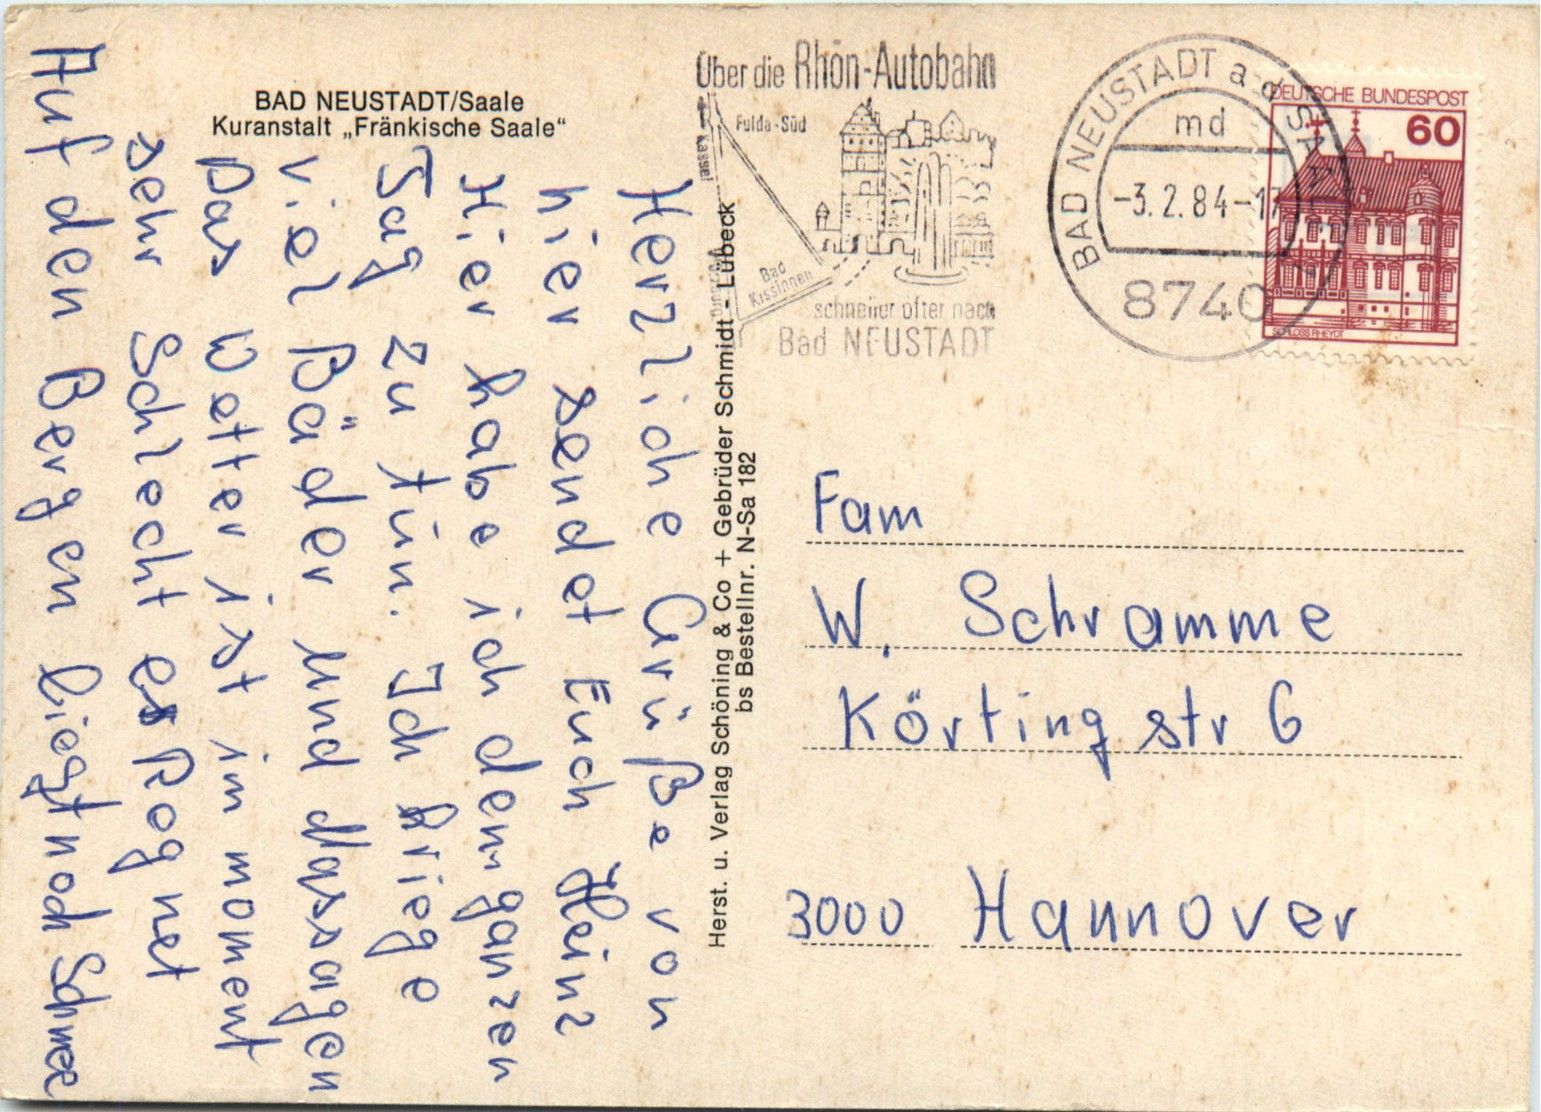 BAD NEUSTADT/Saale
Kuranstalt „Fränkische Saale“
Herzliche Grüße von
hier sendet Euch Heinz
Hier habe ich den ganzen
Tag zu tun. Ich kriege
viel Bäder und Massagen
Das Wetter ist im moment
sehr Schlecht es Regnet
Auf den Bergen liegt noch Schnee
Herst. u. Verlag Schöning & Co + Gebrüder Schmidt - Lübeck
bs Bestellnr. N-Sa 182
Über die Rhön-Autobahn
Fulda-Süd
Kassel
Bad
Kissingen
schneller öfter nach
Bad NEUSTADT
BAD NEUSTADT a d SAALE
md
-3.2.84-17
8740
DEUTSCHE BUNDESPOST
60
SCHLOSS RHEYDT
Fam
W. Schramme
Körtingstr 6
3000 Hannover